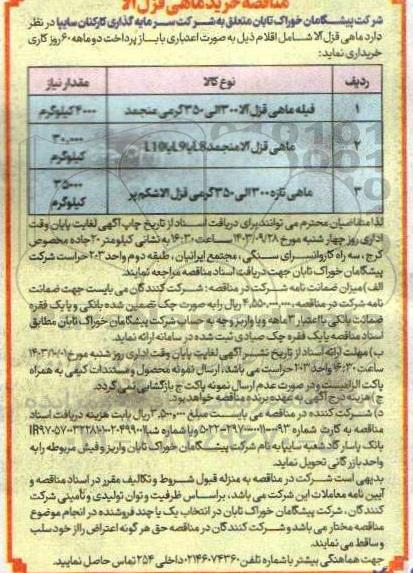 مناقصه خرید ماهی قزل آلا
شرکت پیشگامان خوراک تابان متعلق به شرکت سرمایه گذاری کارکنان سایپا در نظر
دارد ماهی قزل آلا شامل اقلام ذیل به صورت اعتباری با باز پرداخت دو ماهه ۶۰ روز کاری
خریداری نماید:
ردیف نوع کالا مقدار نیاز
۱ فیله ماهی قزل آلا ۳۰۰ الی ۳۵۰ گرمی منجمد ۴۰۰۰ کیلوگرم
۲ ماهی قزل آلا منجمد L8 یا L9 یا L10 ۳۰.۰۰۰ کیلوگرم
۳ ماهی تازه ۳۰۰ الی ۳۵۰ گرمی قزل الا شکم پر ۳۵۰۰۰ کیلوگرم
لذا متقاضیان محترم می توانند برای دریافت اسناد از تاریخ چاپ آگهی لغایت پایان وقت
اداری روز چهار شنبه مورخ ۱۴۰۳/۰۹/۲۸ ساعت ۱۶:۳۰ به نشانی کیلومتر ۲۰ جاده مخصوص
کرج، سه راه کاروانسرای سنگی، مجتمع ایرانیان، طبقه دوم واحد ۲۰۳ حراست شرکت
پیشگامان خوراک تابان جهت دریافت اسناد مناقصه مراجعه نمایند.
الف) میزان ضمانت نامه شرکت در مناقصه: شرکت کنندگان می بایست جهت ضمانت
نامه شرکت در مناقصه، ۴.۵۵۰.۰۰۰.۰۰۰ ریال را به صورت چک تضمین شده بانکی و یا یک فقره
ضمانت بانکی با اعتبار ۳ ماهه و یا واریز وجه به حساب شرکت پیشگامان خوراک تابان مطابق
اسناد مناقصه یا یک فقره چک صیادی ثبت شده در سامانه ارائه نماید.
ب) مهلت ارائه اسناد از تاریخ نشر آگهی لغایت پایان وقت اداری روز شنبه مورخ ۱۴۰۳/۱۰/۰۱
ساعت ۱۶:۳۰ واحد ۲۰۳ حراست می باشد، ارسال نمونه محصول و مستندات کیفی به همراه
پاکت الزامیست و در صورت عدم ارسال نمونه پاکت ج بازگشایی نمی گردد.
ج) هزینه درج آگهی به عهده برنده مناقصه خواهد بود.
د) شرکت کننده در مناقصه می بایست مبلغ ۲.۵۰۰.۰۰۰ ریال بابت هزینه دریافت اسناد
مناقصه به کارت شماره ویا شماره شبا
بانک پاسارگاد شعبه سایپا به نام شرکت پیشگامان خوراک تابان واریز و فیش مربوطه را به
واحد بازرگانی تحویل نماید.
بدیهی است شرکت در مناقصه به منزله قبول شروط و تکالیف مقرر در اسناد مناقصه و
آیین نامه معاملات این شرکت می باشد، براساس ظرفیت و توان تولیدی و تأمینی شرکت
کنندگان، شرکت پیشگامان خوراک تابان در انتخاب یک یا چند فروشنده در انجام موضوع
مناقصه مختار می باشد و شرکت کنندگان در مناقصه حق هر گونه اعتراض را از خود سلب
و ساقط می نمایند.
جهت هماهنگی بیشتر با شماره تلفن ۰۲۱۴۶۰۷۴۳۶۰ داخلی ۲۵۴ تماس حاصل نمایید.